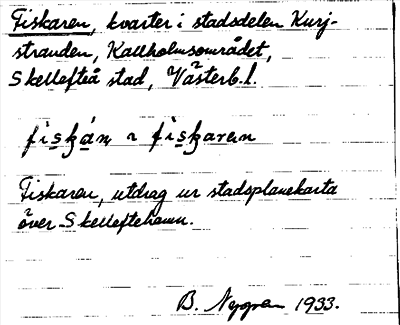 Fiskaren, kvarter i stadsdelen Kurj-
stranden, Kallholmsområdet,
Skellefteå stad, Västerb. l.
fiskán ~ fiskaren
Fiskaren, utdrag ur stadsplanekarta
över Skelleftehamn.
B. Nygren 1933.